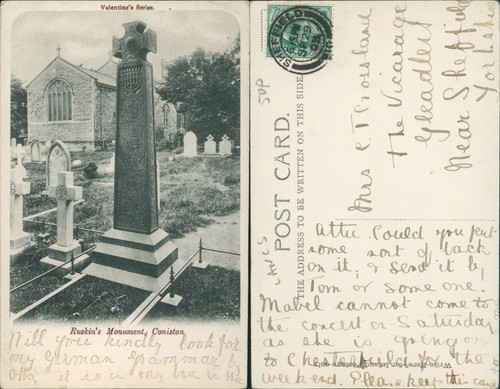 Valentine's Series
Ruskin's Monument, Coniston
Will you kindly look for
my German Grammar by
Otto, it is in my
SHEFFIELD
50P
POST CARD.
THE ADDRESS TO BE WRITTEN ON THIS SIDE.
Mrs C T Crossland
The Vicarage
Gleadless
Near Sheffield
Yorkshire
Attic. Could you put
some sort of back
on it, & send it by
Tom or some one.
Mabel cannot come to
the concert on Saturday
as she is going over
to Chesterfield for the
weekend. Please keep this card